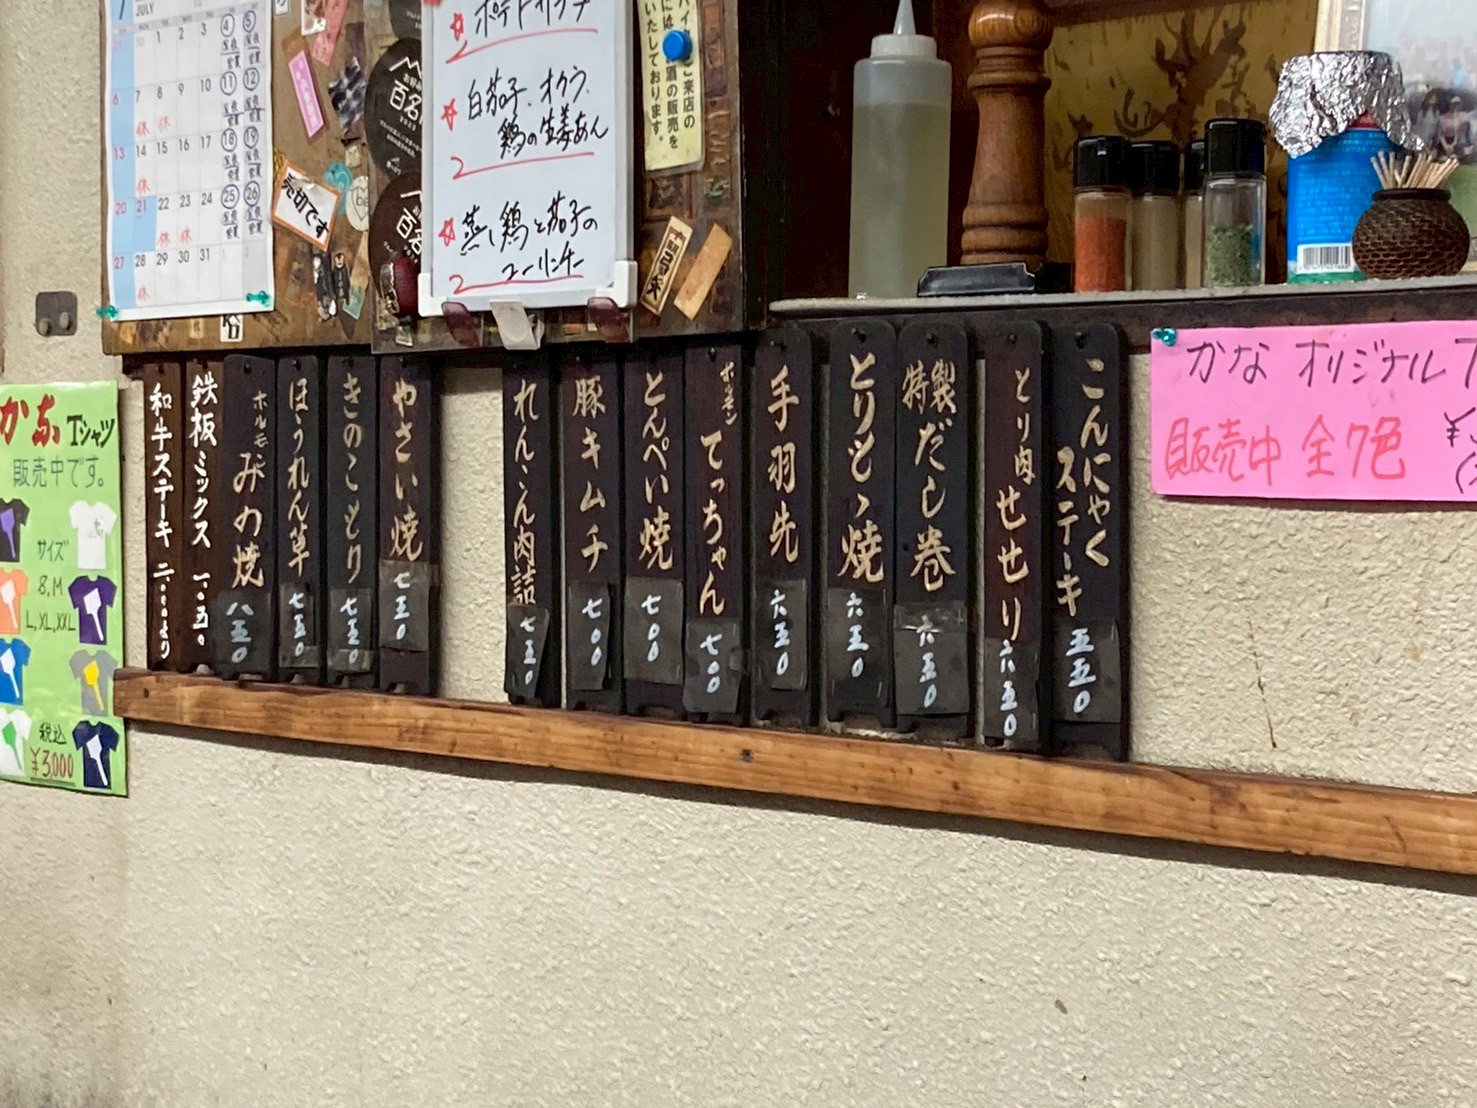 7
JULY
1 2 3 4 5
6 7 8 9 10 11 12
13 14 15 16 17 18 19
20 21 22 23 24 25 26
27 28 29 30 31
休
休
休
休
休
休
休
売切です
百名
百名
白茄子、オクラ、
鶏の生姜あん
蒸し鶏と茄子の
ご来店の
には酒の販売を
いたしております。
かな Tシャツ
販売中です。
サイズ
S,M
L,XL,XXL
税込
¥3,000
和牛ステーキ 二〇〇〇より
鉄板ミックス 一〇五〇
ホルモン みの焼 八五〇
ほうれん草 七五〇
きのこもり 七五〇
やさい焼 七五〇
れんこん肉詰 七五〇
豚キムチ 七〇〇
とんぺい焼 七〇〇
ホルモン てっちゃん 七〇〇
手羽先 六五〇
とりもも焼 六五〇
特製だし巻 六五〇
とり肉 せせり 六五〇
こんにゃく
ステーキ 五五〇
かな オリジナルT
販売中 全7色